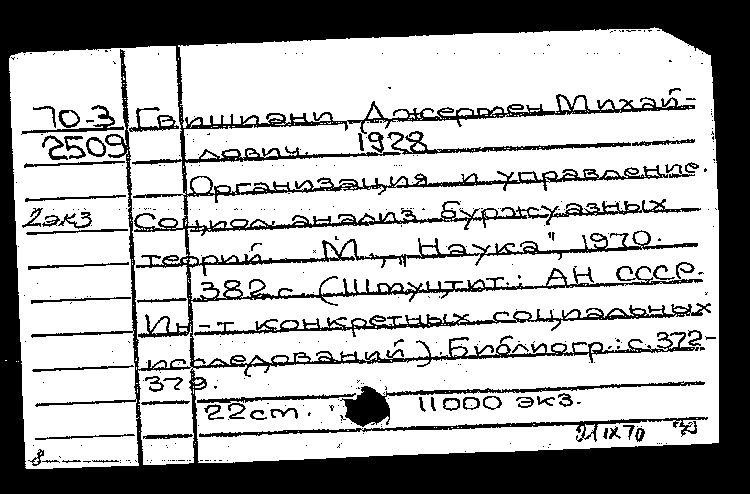 70-3 Гвишиани, Джермен Михай-
2509 лович. 1928
Организация и управление.
2экз Социол. анализ буржуазных
теорий. М., „Наука", 1970.
382 с. (Шмуцтит.: АН СССР.
Ин-т конкретных социальных
исследований). Библиогр.: с. 372-
379.
22 см. 11000 экз.
21 IX 70
8